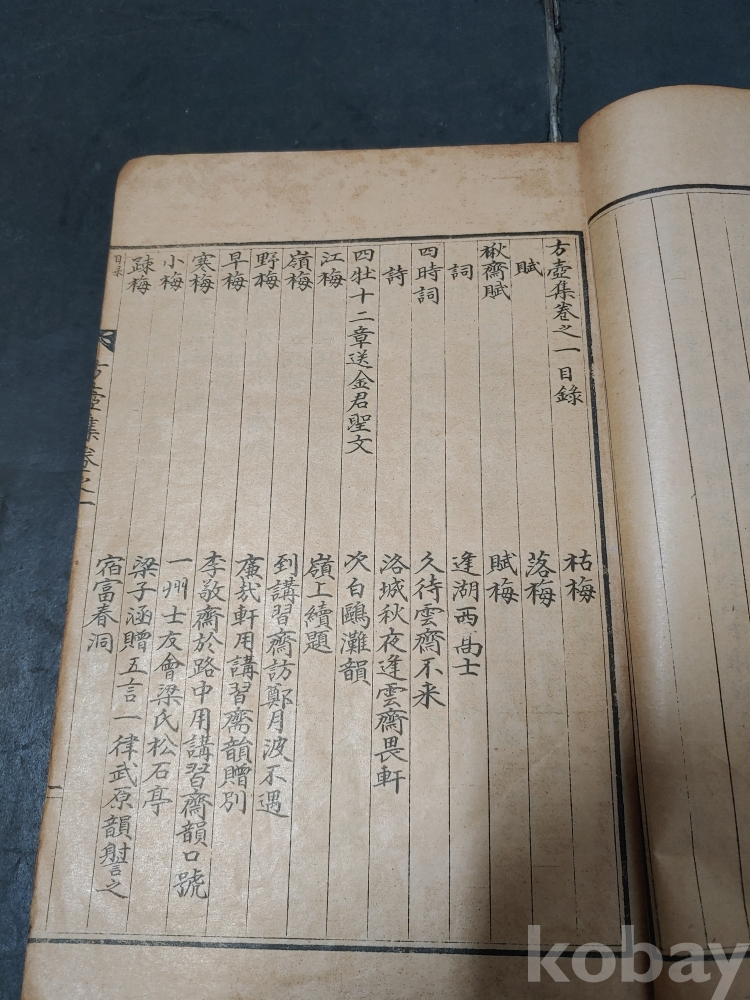 方壺集卷之一目錄
賦
楸齋賦
詞
四時詞
詩
四牡十二章送金君聖文
江梅
嶺梅
野梅
早梅
寒梅
小梅
疎梅
枯梅
落梅
賦梅
逢湖西高士
久待雲齋不来
洛城秋夜逢雲齋畏軒
次白鷗灘韻
嶺上續題
到講習齋訪鄭月波不遇
軒用講習齋韻贈別
李敬齋於路中用講習齋韻口號
一州士友會梁氏松石亭
梁子涵贈五言一律武原韻謝之
宿富春洞
目录
方壺集卷之一
一
kobay